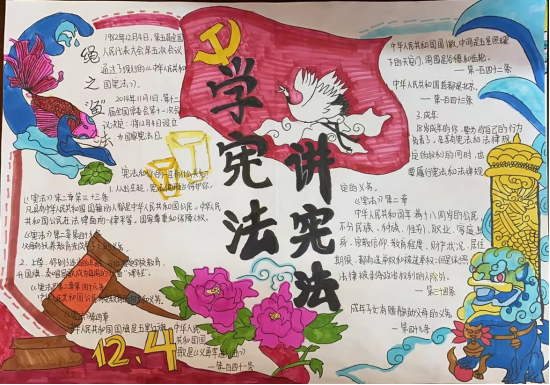 绳之
以法
1982年12月4日,第五届全国
人民代表大会第五次会议
通过了现行的《中华人民共和
国宪法》。
2014年11月1日,第十二
届全国
会议决定:将12月4日设立
为国家宪法日。
学宪法
讲宪法
1.从出生起,宪法
《宪法》第二章第三十三条
凡具有中华人民共和国国籍的人都是中华人民共和国公民。中华人民
共和国公民在法律面前一律平等。国家尊重和保障人权。
《宪法》第二章第四十
2.上学
中华人民共和国国旗是五星红旗。中华人民
共和国国
歌是《义勇军进行曲》
—第一百四十一条
12.4
中华人民共和国国徽,中间是五星照耀
下的天安门,周围是谷穗和齿轮。
—第一百四十二条
中华人民共和国首都是北京。
—第一百四十三条
3.成年
18岁成年的你,要为自己的行为
负责了,在享有宪法和法律规
定的权利的同时,也
要履行宪法和法律规
定的义务。
《宪法》第二章
中华人民共和国年满十八周岁的公民,
不分民族、种族、性别、职业、家庭出
身、宗教信仰、教育程度、财产状况、居住
期限,都有选举权和被选举权;但是依照
法律被剥夺政治权利的人除外。
—第三十四条
成年子女有赡养扶助父母的义务。
—第四十九条